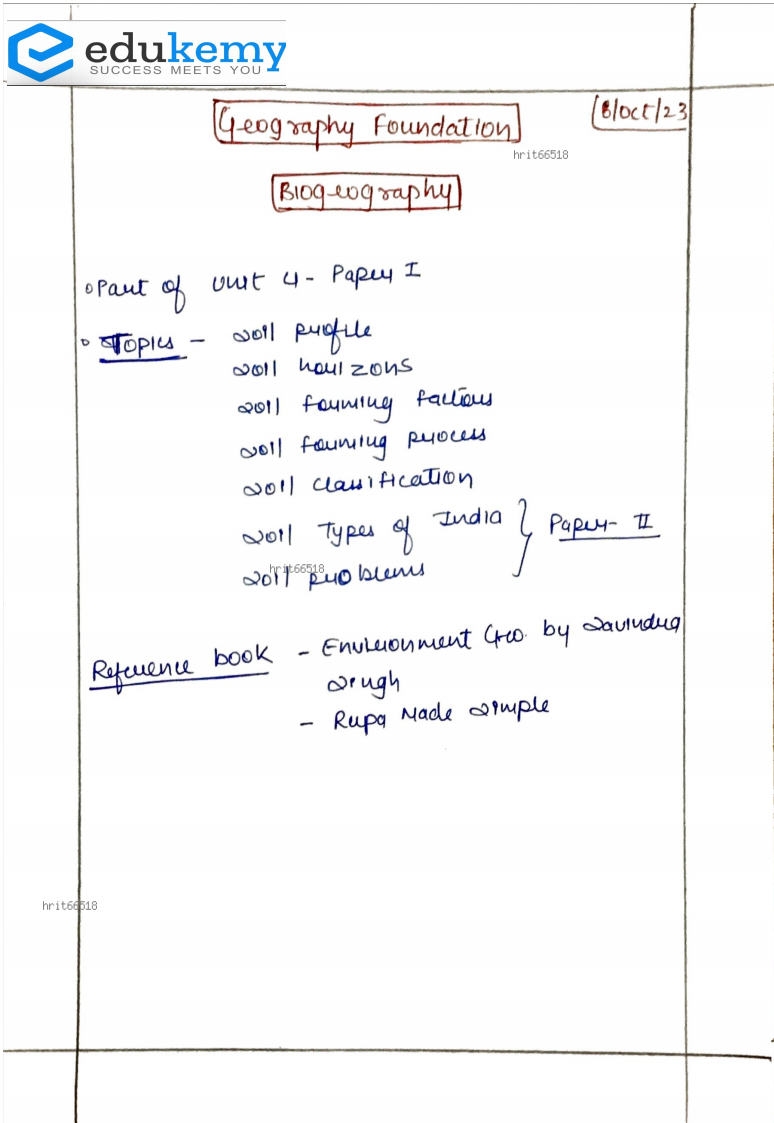 edukemy
SUCCESS MEETS YOU
Geography Foundation
6/Oct/23
hrit66518
Biogeography
Part of Unit 4 - Paper I
Topics - Soil profile
Soil horizons
Soil forming factors
Soil forming process
Soil classification
Soil Types of India } Paper - II
hrit66518
Soil problems
Reference book - Environment Geo. by Savindra
Singh
- Rupa Made Simple
hrit66518